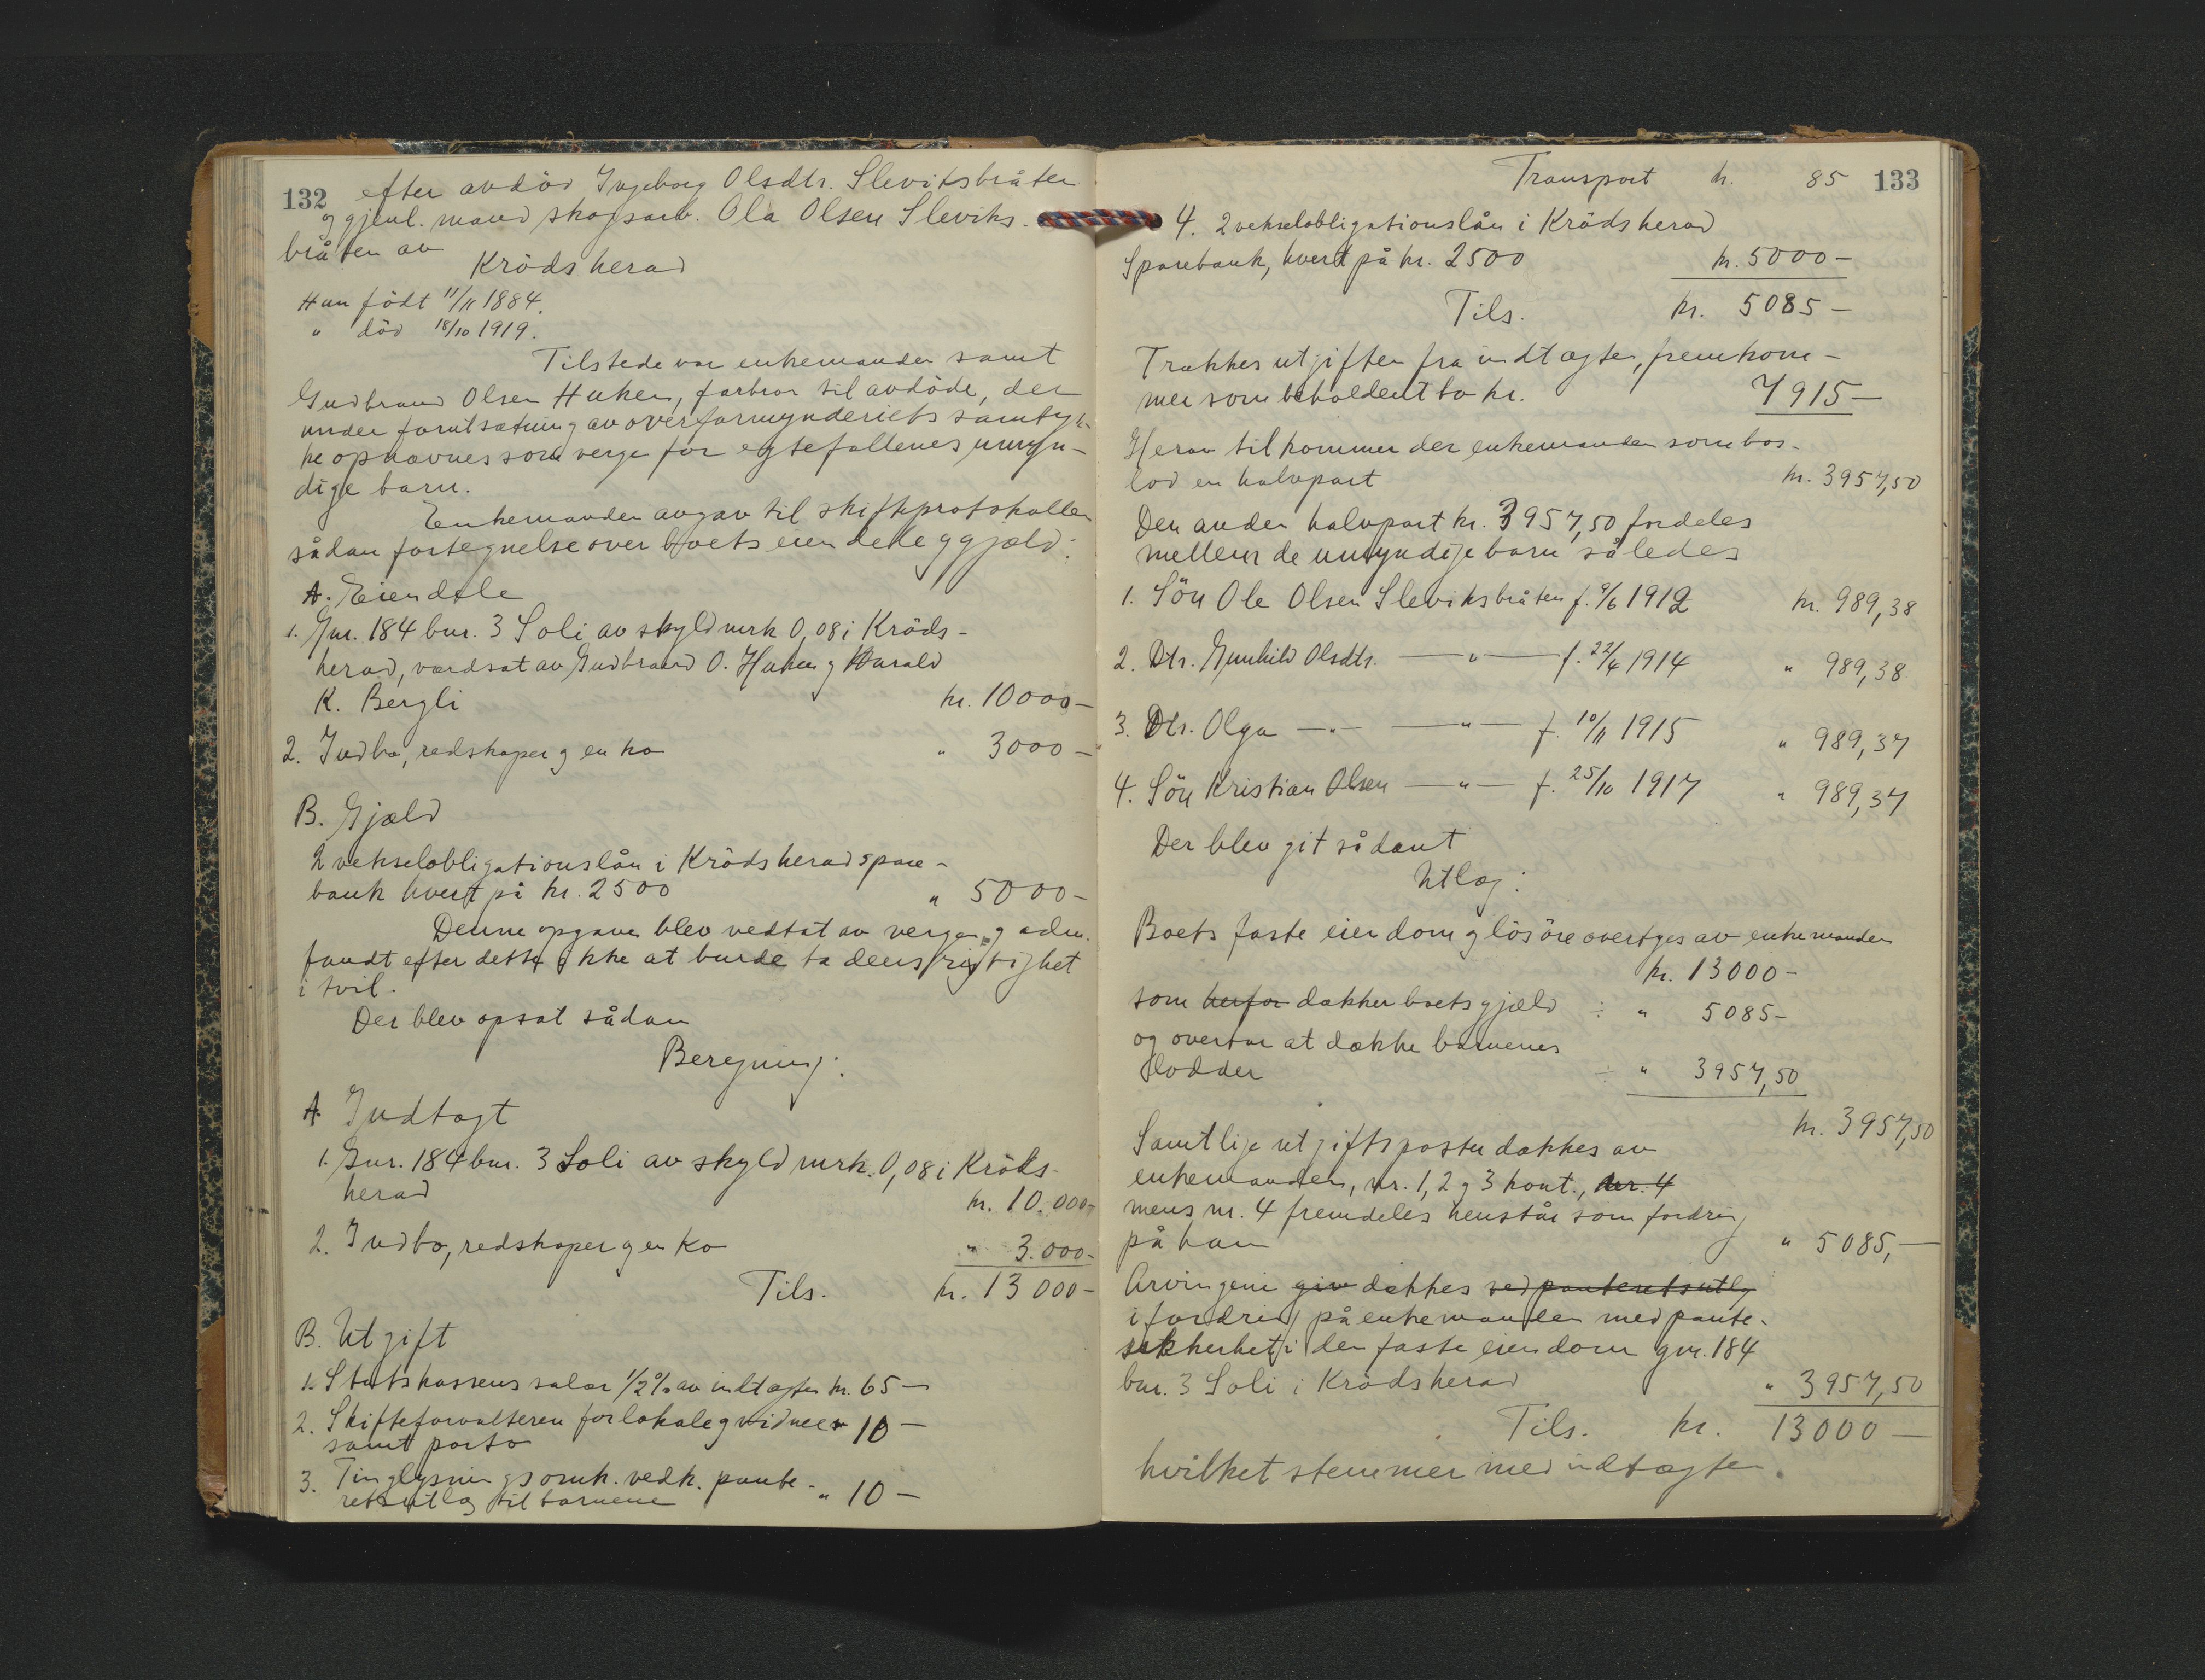 132
efter avdöd Ingeborg Olsdtr. Sleviksbråten
og gjenl. mand skogsarb. Ola Olsen Sleviks-
bråten av
Krödsherad
Hun født 11/11 1884.
" död 18/10 1919.
Tilstede var enkemanden samt
Gudbrand Olsen Haken, farbror til avdöde, der
under forutsætning av overformynderiets samtyk-
ke opnævnes som verge for egtefællenes umyn-
dige barn.
Enkemanden avgav til skifteprotokollen
sådan fortegnelse over boets eiendele og gjæld:
A. Eiendele
1. Gnr. 184 bnr. 3 Soli av skyld mrk 0,08 i Kröds-
herad, værdsat av Gudbrand O. Haken og Harald
K. Bergli kr. 10000-
2. Indbo, redskaper og en ko " 3000-
B. Gjæld
2 vekselobligationslån i Krödsherad spare-
bank hvert på kr. 2500 " 5000-
Denne opgave blev vedtat av vergen, og adm.
fandt efter dette ikke at burde ta dens rigtighet
i tvil.
Der blev opsat sådan
Beregning:
A Indtægt
1. Gnr. 184 bnr. 3 Soli av skyld mrk. 0,08 i Kröds-
herad kr. 10.000-
2. Indbo, redskaper og en ko " 3.000-
Tils. kr. 13000-
B. Utgift
1. Statskassens salær 1/2 % av indtægten kr. 65-
2. Skifteforvalteren for lokale og vidner 10-
samt porto
3. Tinglysningsomk. vedk. pante-
retsutlæg til barnene " 10-
133
Transport kr. 85
4. 2 vekselobligationslån i Krödsherad
Sparebank, hvert på kr. 2500 kr. 5000-
Tils. kr. 5085-
Trækkes utgiften fra indtægten, fremkom-
mer som beholdent bo kr. 7915-
Herav tilkommer der enkemanden som bos-
lod en halvpart kr. 3957,50
Den anden halvpart kr. 3957,50 fordeles
mellem de umyndige barn således
1. Sön Ole Olsen Sleviksbråten f. 9/6 1912 kr. 989,38
2. Dtr. Gunhild Olsdtr. —"— f. 22/4 1914 " 989,38
3. Dtr. Olga —"— —"— f. 10/11 1915 " 989,37
4. Sön Kristian Olsen —"— f. 25/10 1917 " 989,37
Der blev git sådant
Utlæg:
Boets faste eiendom og lösöre overtages av enkemanden
kr. 13000-
som herfor dækker boets gjæld ÷ " 5085-
og overtar at dække barnenes
lodder ÷ " 3957,50
kr. 3957,50
Samtlige utgiftsposter dækkes av
enkemanden, nr. 1, 2 og 3 kont., nr. 4
mens nr. 4 fremdeles henstår som fordring
på ham " 5085,-
Arvingene giv dækkes ved panteretsutlæg
i fordring på enkemanden med pante-
sikkerhet i den faste eiendom gnr. 184
bnr. 3 Soli i Krödsherad " 3957,50
Tils. kr. 13000-
hvilket stemmer med indtægten.